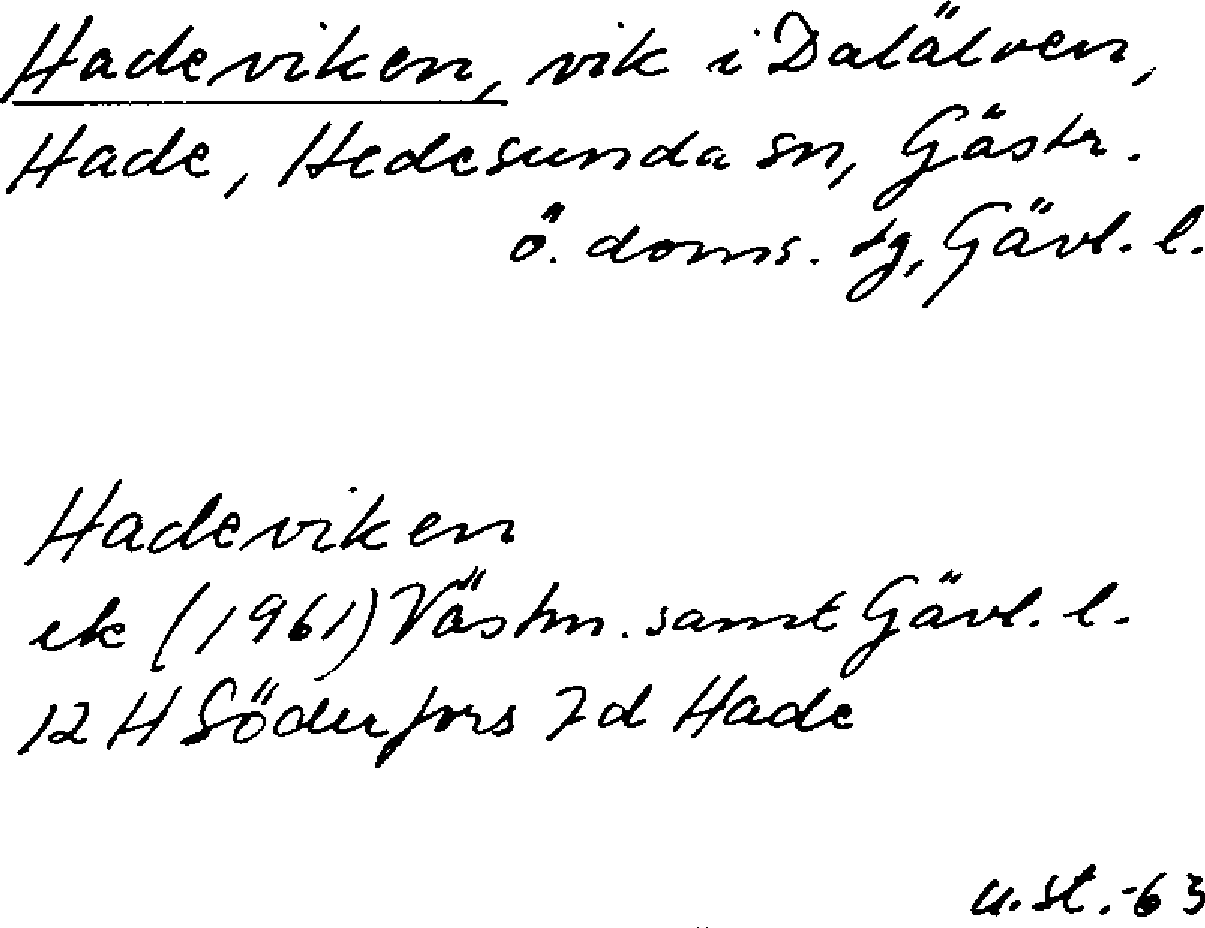 Hadeviken, vik i Dalälven,
Hade, Hedesunda sn, Gästr.
ö. doms. tg, Gävl. l.
Hadeviken
ek (1961) Västm. samt Gävl. l.
12 H Söderfors 7d Hade
u.st.-63